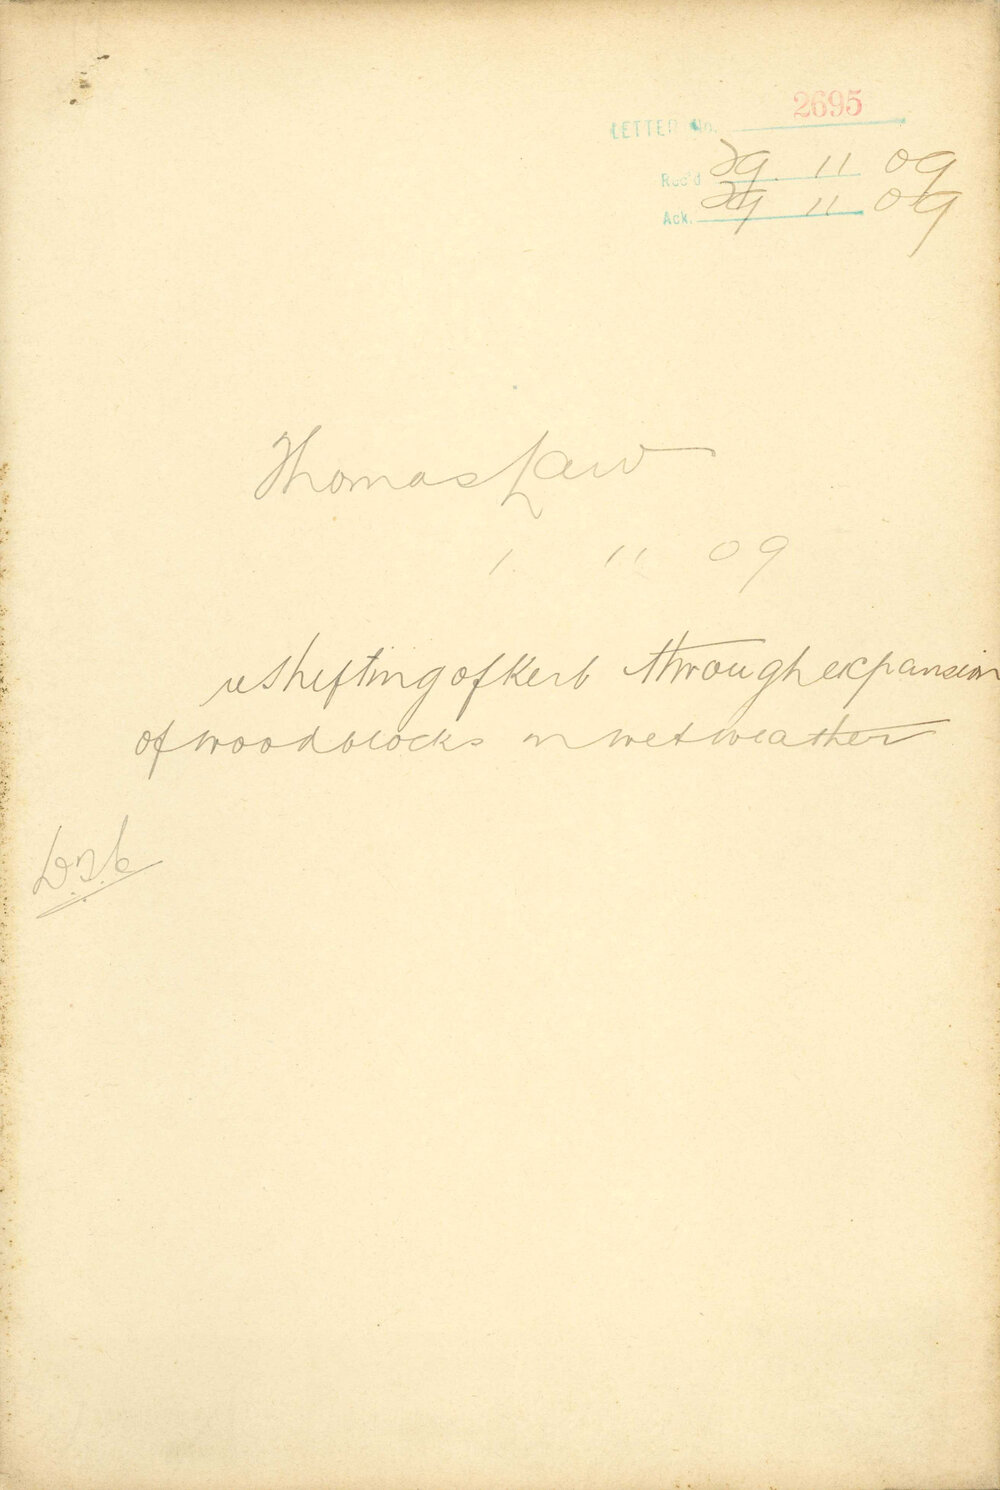 LETTER No. 2695
Rec'd 29. 11 09
Ack. 29 11 09
Thomas Law
1. 11 09
re Shifting of Kerb through expansion
of woodblocks in wet weather